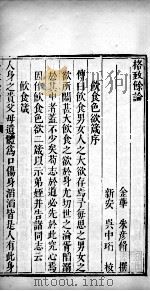 格致餘論
金華 朱彥修 撰
新安 吳中珩 校
飲食色慾箴序
傳曰飲食男女人之大欲存焉予每思之男女之
欲所關甚大飲食之欲於身尤切世之淪胥陷溺
於其中者蓋不少矣苟志於道必先於此究心焉
因作飲食色欲二箴以示弟姪并告諸同志云
飲食箴
人身之貴父母遺體為口傷身滔滔皆是人有此身